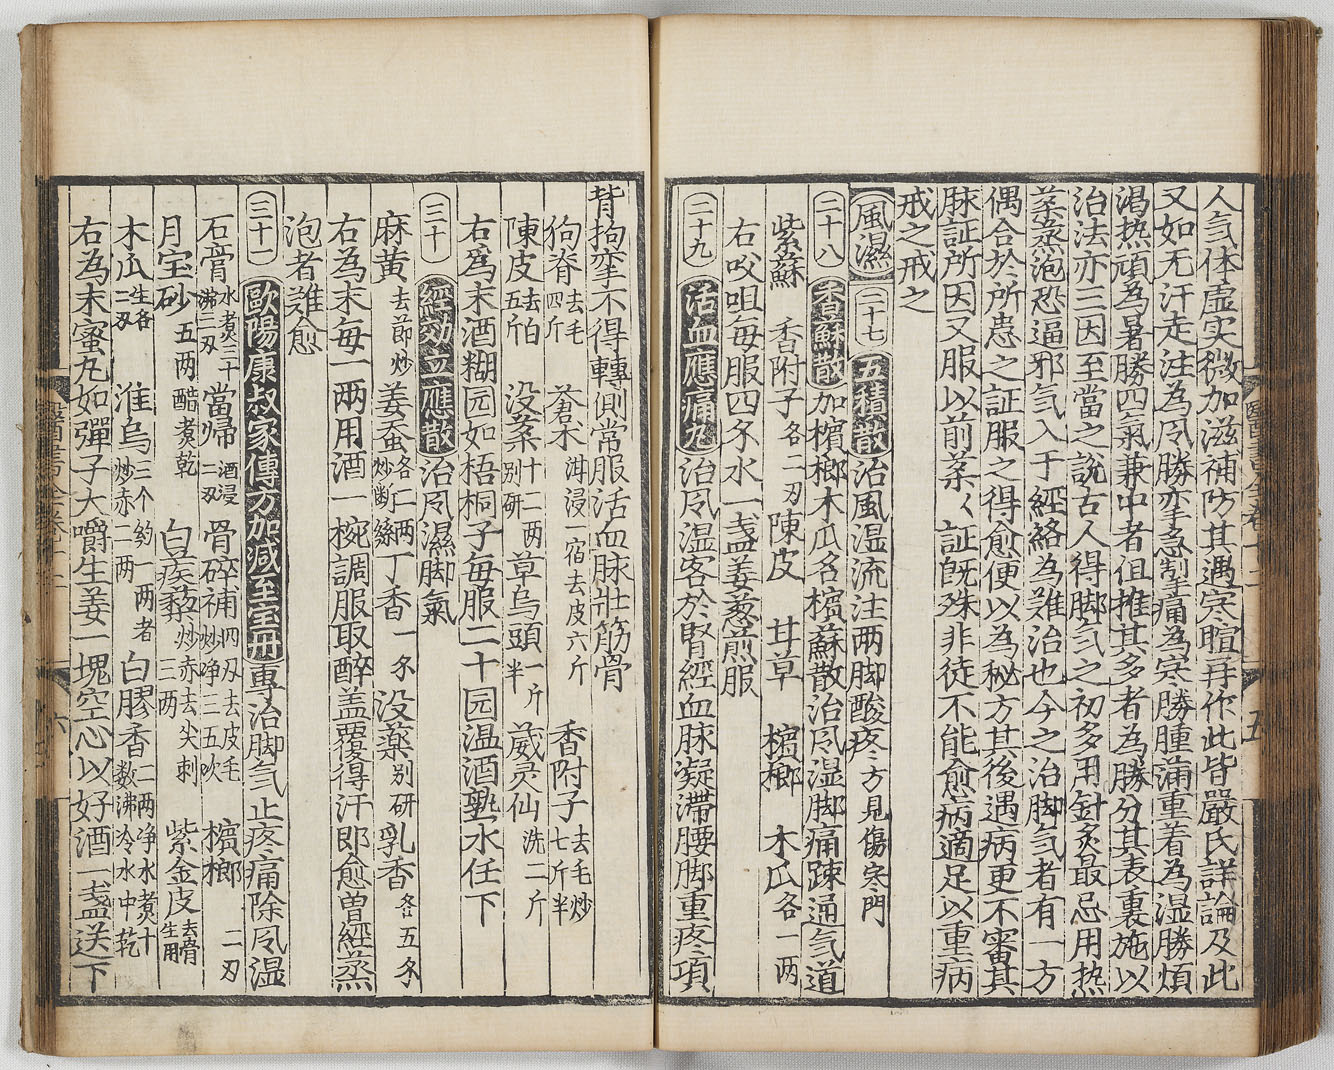 人气体虚实微加滋補防其遇寒暄再作此皆嚴氏詳論及此
又如无汗走注為风勝挛急掣痛為寒勝腫滿重着為湿勝煩
渴热頑為暑勝四氣兼中者但推其多者為勝分其表裏施以
治法亦三因至當之說古人得脚气之初多用針灸最忌用热
薬蒸泡恐逼邪气入于經絡為難治也今之治脚气者有一方
偶合於所患之証服之得愈便以為秘方其後遇病更不審其
脉証所因又服以前薬〻証既殊非徒不能愈病適足以重病
戒之戒之
風濕 二十七 五積散 治風湿流注两脚酸疼 方見傷寒門
二十八 香蘇散 加檳榔木瓜名檳蘇散治风湿脚痛踈通气道
紫蘇 香附子各二刃 陳皮 甘草 檳榔 木瓜各一两
右㕮咀每服四夕水一盞姜葱煎服
二十九 活血應痛丸 治风湿客於腎經血脉凝滯腰脚重疼項
背拘挛不得轉側常服活血脉壮筋骨
狗脊去毛四斤 苍术泔浸一宿去皮六斤 香附子去毛炒七斤半
陳皮去白五斤 没薬十二两别研 草烏頭一斤半 葳灵仙洗二斤
右為末酒糊园如梧桐子每服二十园温酒熟水任下
三十 經効立應散 治风濕脚氣
麻黄去節炒 姜蚕各二两炒断絲 丁香一夕 没薬别研 乳香各五夕
右為末每一两用酒一椀調服取醉盖覆得汗即愈曽經蒸
泡者難愈
三十一 歐陽康叔家傳方加减至宝丹 專治脚气止疼痛除风湿
石膏水煮三十沸二刃 當帰酒浸二刃 骨碎補四刃去皮毛炒净二五吹 檳榔二刃
月宝砂五两醋煮乾 白蒺藜炒赤去尖刺三两 紫金皮去骨生用
木瓜生各二刃 淮烏三个約一两者炒赤二两 白膠香二两净水煮十数沸冷水中乾
右為末蜜丸如彈子大嚼生姜一塊空心以好酒一盞送下